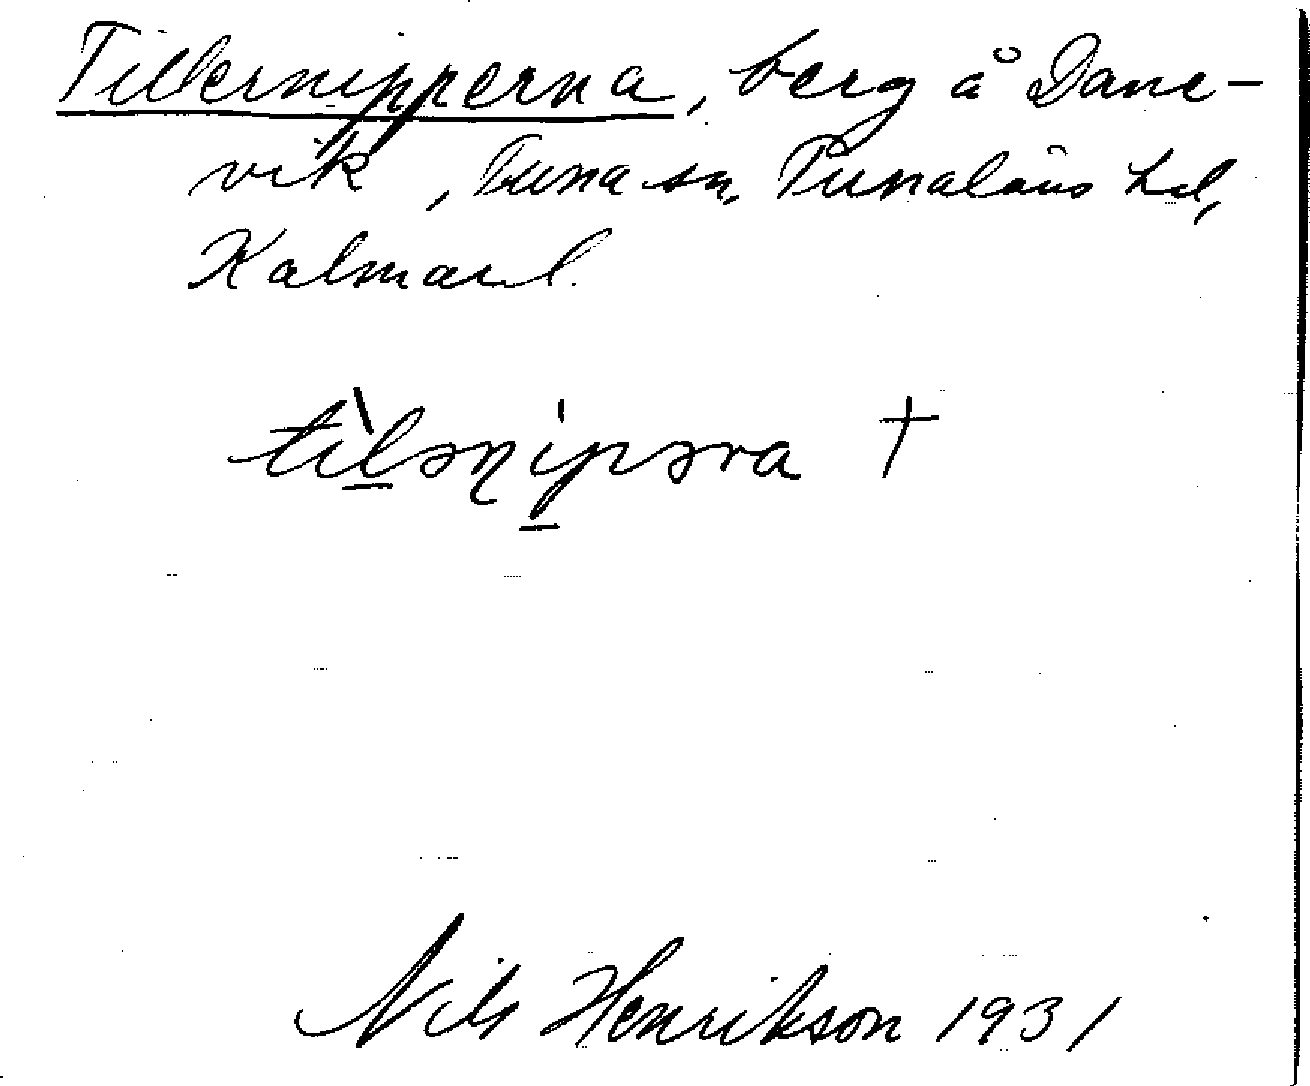 Tillernipperna, berg å Dane-
vik, Tuna sn, Tunaläns hd,
Kalmar l.
tìləɳipəra †
Nils Henrikson 1931